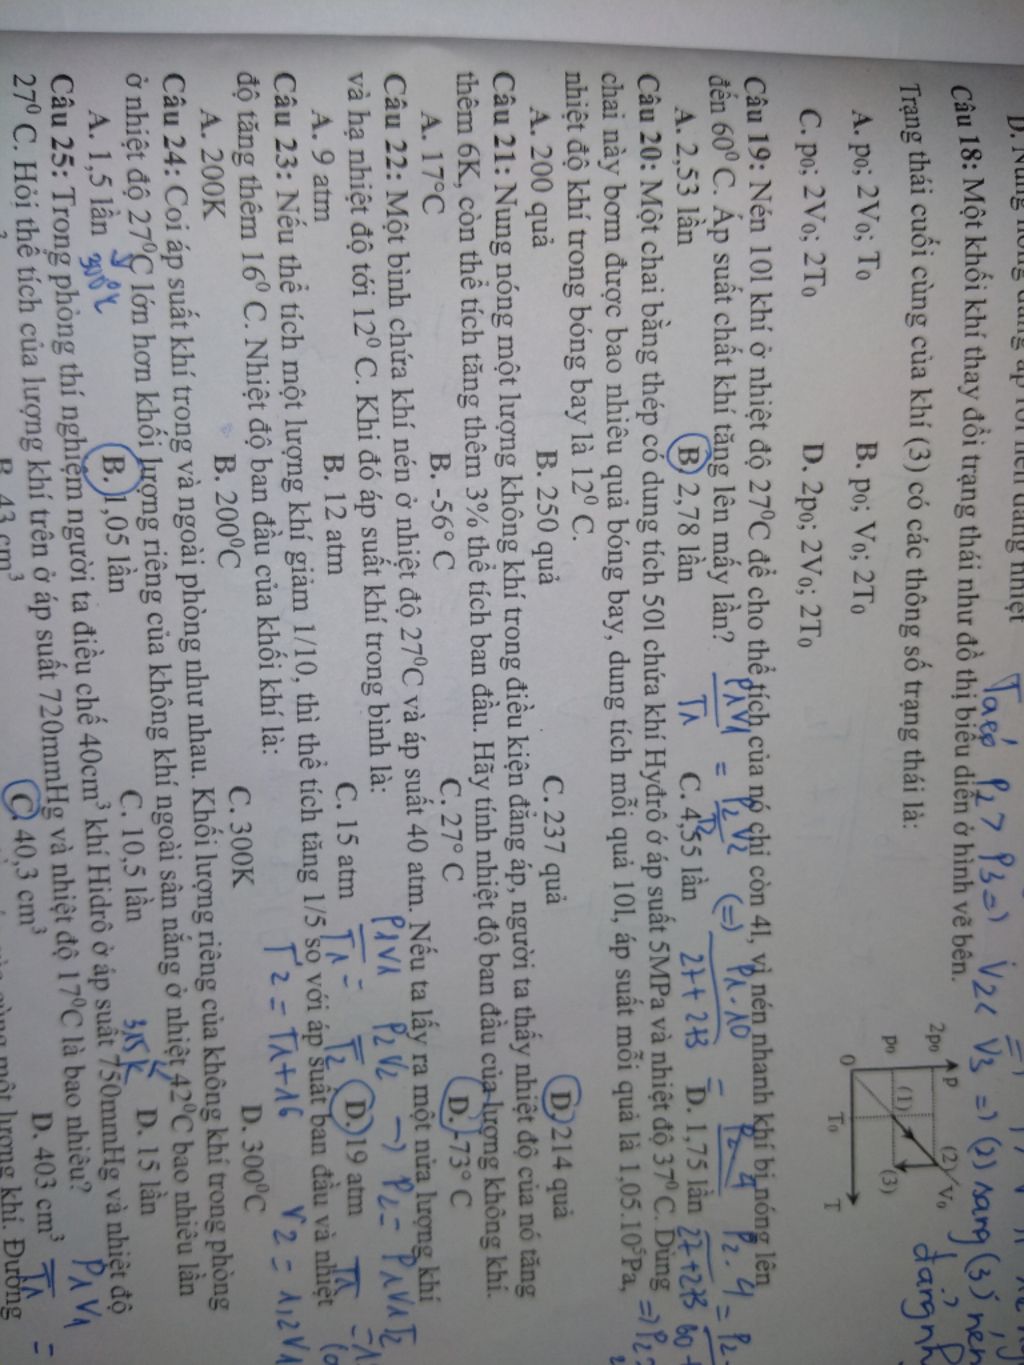 Câu 18: Một khối khí thay đổi trạng thái như đồ thị biểu diễn ở hình vẽ bên.
Trạng thái cuối cùng của khí (3) có các thông số trạng thái là:
A. p₀; 2V₀; T₀ B. p₀; V₀; 2T₀
C. p₀; 2V₀; 2T₀ D. 2p₀; 2V₀; 2T₀
2p₀ p (2) V₀
p₀ (1) (3)
0 T₀ T
Câu 19: Nén 10l khí ở nhiệt độ 27⁰C để cho thể tích của nó chỉ còn 4l, vì nén nhanh khí bị nóng lên
đến 60⁰C. Áp suất chất khí tăng lên mấy lần?
A. 2,53 lần B. 2,78 lần C. 4,55 lần D. 1,75 lần
Câu 20: Một chai bằng thép có dung tích 50l chứa khí Hyđrô ở áp suất 5MPa và nhiệt độ 37⁰C. Dùng
chai này bơm được bao nhiêu quả bóng bay, dung tích mỗi quả 10l, áp suất mỗi quả là 1,05.10⁵Pa,
nhiệt độ khí trong bóng bay là 12⁰ C.
A. 200 quả B. 250 quả C. 237 quả D. 214 quả
Câu 21: Nung nóng một lượng không khí trong điều kiện đẳng áp, người ta thấy nhiệt độ của nó tăng
thêm 6K, còn thể tích tăng thêm 3% thể tích ban đầu. Hãy tính nhiệt độ ban đầu của lượng không khí.
A. 17°C B. -56° C C. 27° C D. -73° C
Câu 22: Một bình chứa khí nén ở nhiệt độ 27⁰C và áp suất 40 atm. Nếu ta lấy ra một nửa lượng khí
và hạ nhiệt độ tới 12⁰ C. Khi đó áp suất khí trong bình là:
A. 9 atm B. 12 atm C. 15 atm D. 19 atm
Câu 23: Nếu thể tích một lượng khí giảm 1/10, thì thể tích tăng 1/5 so với áp suất ban đầu và nhiệt
độ tăng thêm 16⁰ C. Nhiệt độ ban đầu của khối khí là:
A. 200K B. 200⁰C C. 300K D. 300⁰C
T2 = T1 + 16 V2 = 1,2 V1
Câu 24: Coi áp suất khí trong và ngoài phòng như nhau. Khối lượng riêng của không khí trong phòng
ở nhiệt độ 27⁰C lớn hơn khối lượng riêng của không khí ngoài sân nắng ở nhiệt 42⁰C bao nhiêu lần
A. 1,5 lần B. 1,05 lần C. 10,5 lần D. 15 lần
Câu 25: Trong phòng thí nghiệm người ta điều chế 40cm³ khí Hidrô ở áp suất 750mmHg và nhiệt độ
27⁰ C. Hỏi thể tích của lượng khí trên ở áp suất 720mmHg và nhiệt độ 17⁰C là bao nhiêu?
B. 43 cm³ C. 40,3 cm³ D. 403 cm³